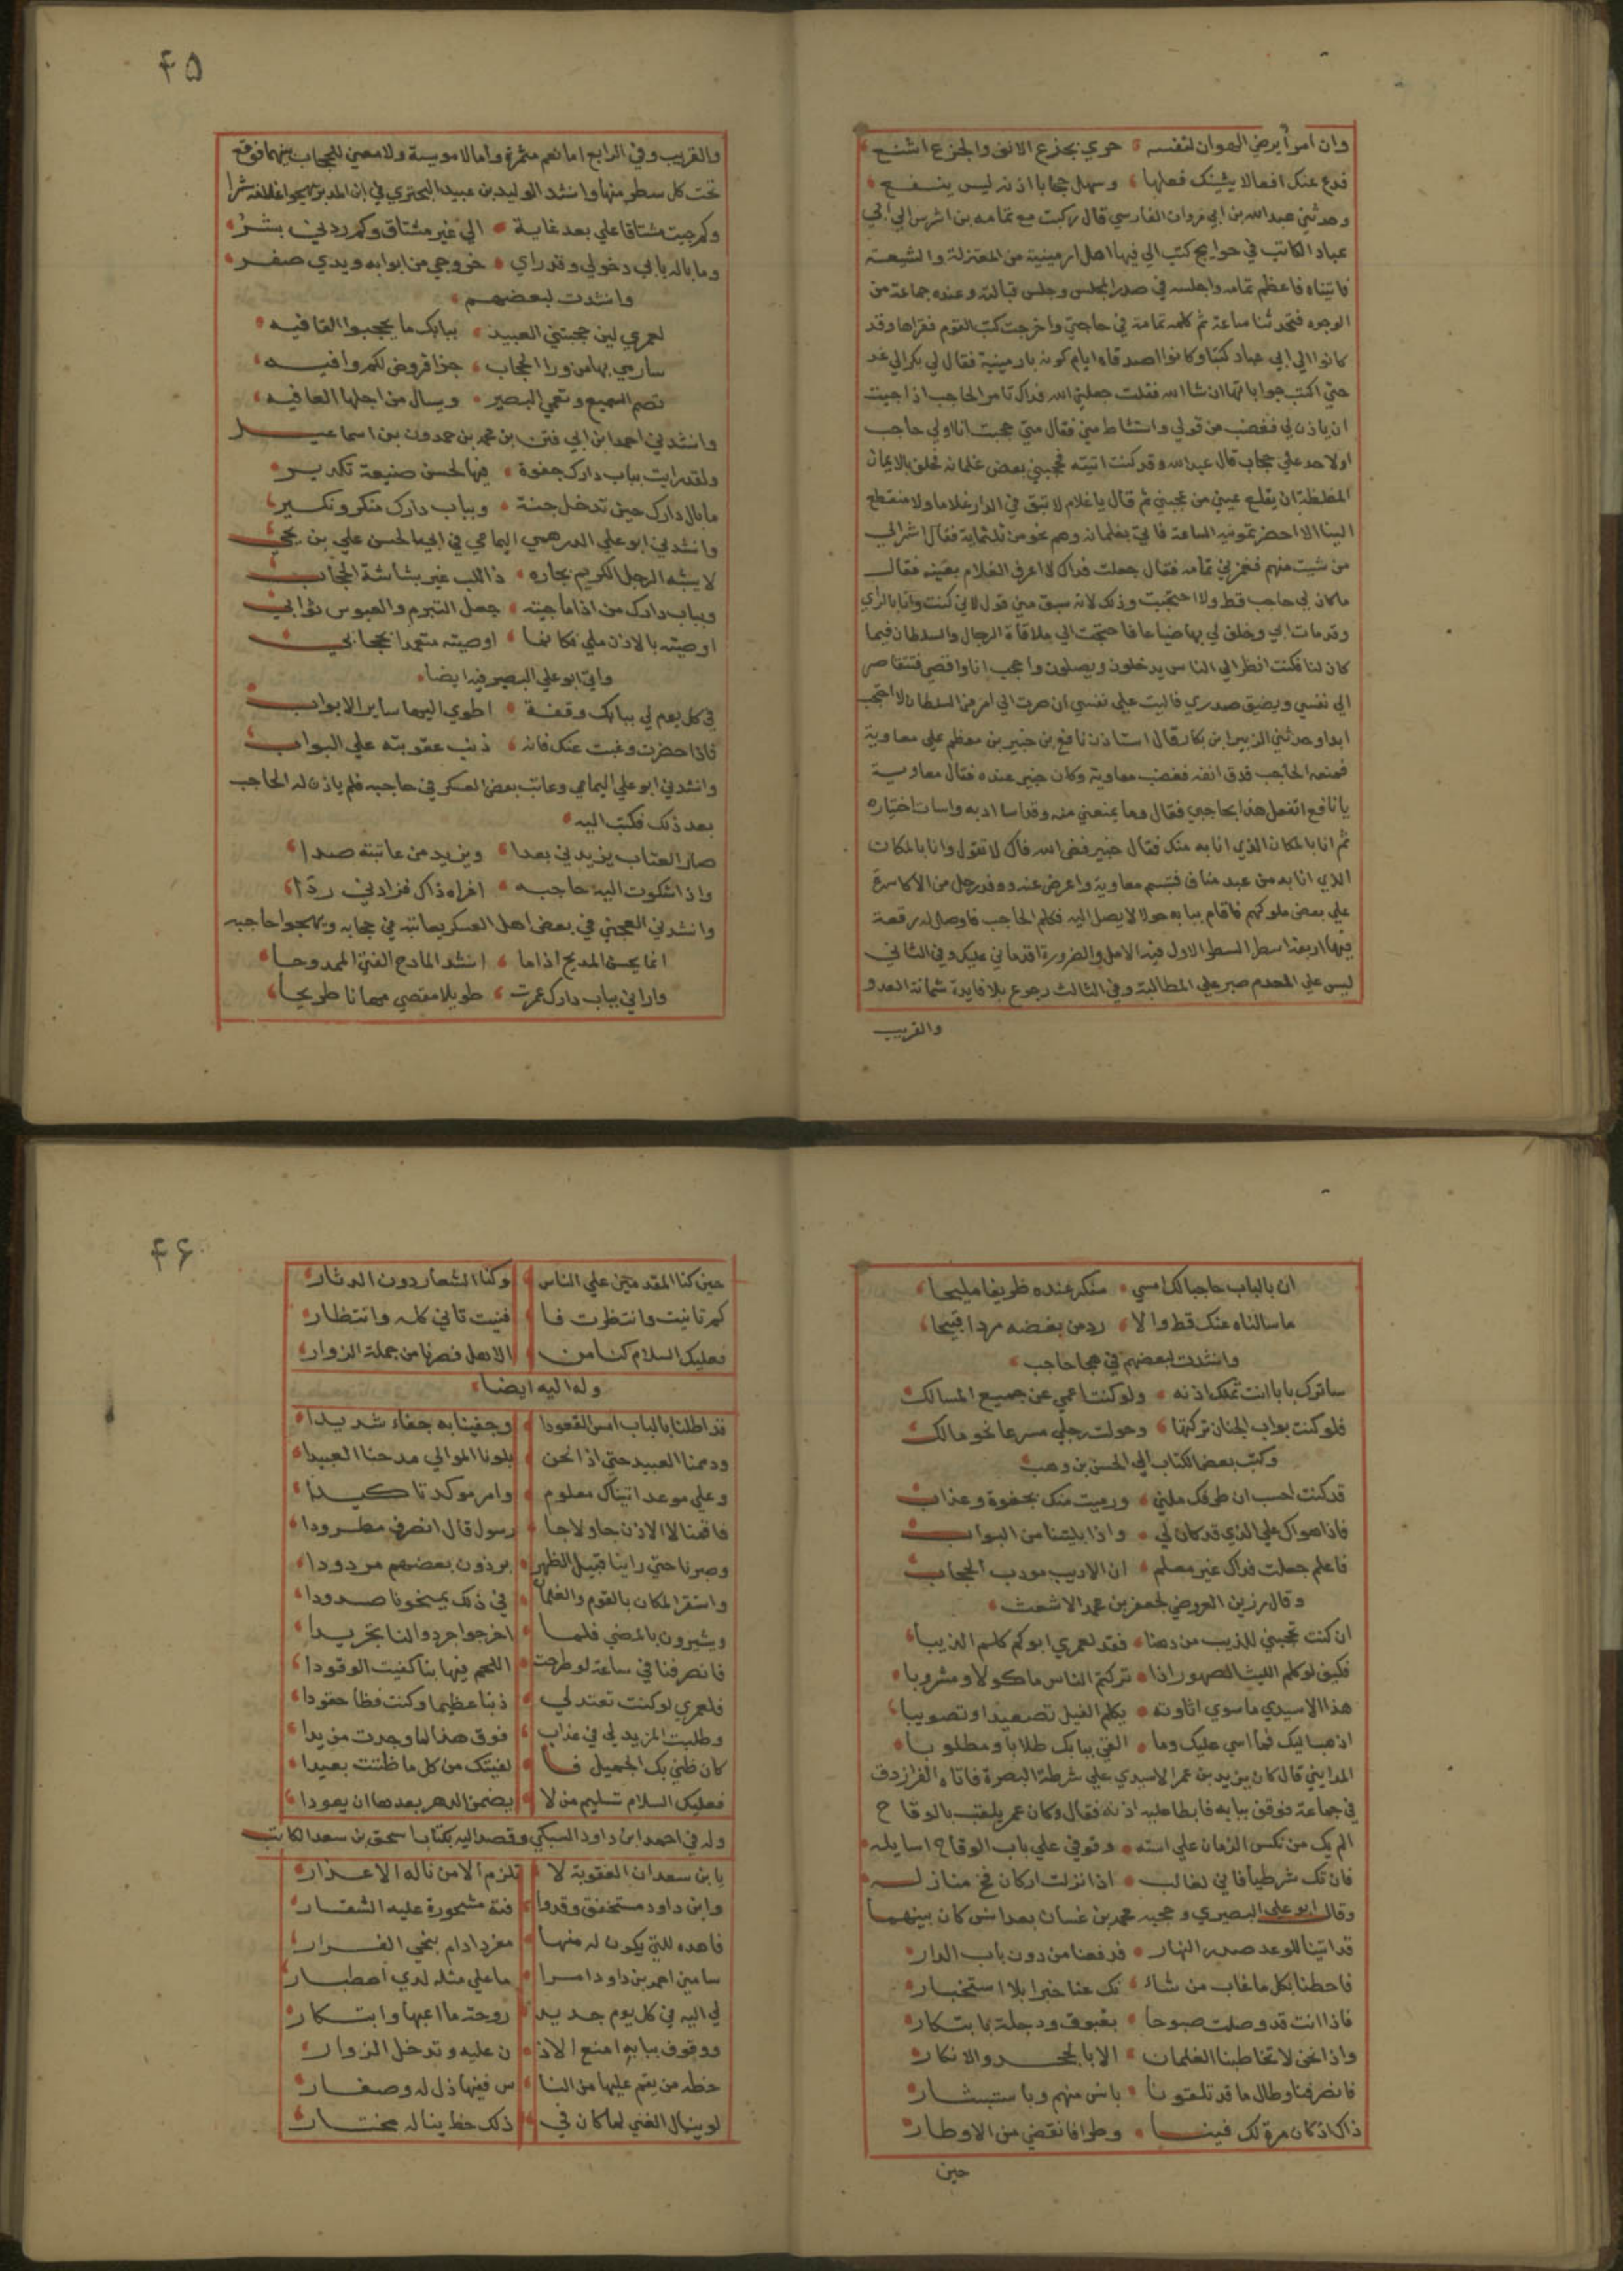 وان امرأ يرضي الهوان لنفسه حري بجزع الانف والجزع اشنع
فدع عنك افعالا يشينك فعلها وسهل حجابا اذنه ليس ينفع
وحدثني عبدالله بن ابي مروان الفارسي قال ركبت مع ثمامه بن اشرس الي ابي
عباد الكاتب في حوايج كتب الي فيها اهل ارمينية من المعتزلة والشيعة
فاتيناه فاعظم ثمامه واجلسه في صدر المجلس وجلس قبالته وعنده جماعة من
الوجوه فتحدثنا ساعة ثم كلمه ثمامة في حاجتي واخرجت كتب القوم فقراها وقد
كانوا الي ابي عباد كتبا وكانوا اصدقاه ايام كونه بارمينية فقال لي بكر الي غد
حتي اكتب جواباتها ان شا الله فقلت جعلني الله فداك تامر الحاجب اذا جيت
ان ياذن لي فغضب من قولي واستشاط مني فقال متي حجبت انا ولي حاجب
اولاحد علي حجاب قال عبدالله وقد كنت اتيته فحجبني بعض غلمانه فحلف بالايمان
المغلظة ان يقلع عيني من حجبني ثم قال يا غلام لا تبق في الدار غلاما ولا منقطع
الينا الا احضرتموفيه الساعة فاتي بغلمانه وهم نحو من ثلثماية فقال اشر الي
من شيت منهم فغمزني ثمامه فقال جعلت فداك لا اعرف الغلام بعينه فقال
ما كان لي حاجب قط ولا احتجبت وذلك لانه سبق مني قول لاني كنت وانا بالراي
وقد مات ابي وخلف لي بها ضياعا فاحتجت الي ملاقاة الرجال والسلطان فيما
كان لنا فكنت انظر الي الناس يدخلون ويصلون واحجب انا واقصي فتتقاصر
الي نفسي ويضيق صدري فاليت علي نفسي ان صرت الي امر من السلطان لا احتجب
ابدا وحدثني الزبير بن بكار قال استاذن نافع بن جبير بن مطعم علي معاوية
فمنعه الحاجب فدق انفه فغضب معاوية وكان جبير عنده فقال معاوية
يا نافع اتفعل هذا بحاجبي فقال وما يمنعني منه وقد اسا ادبه واسات اختياره
ثم انا بالمكان الذي انا به منك فقال جبير فض الله فاك لا تقول وانا بالمكان
الذي انا به من عبد مناف فتبسم معاوية واعرض عنه ووفد رجل من الاكاسرة
علي بعض ملوكهم فاقام ببابه حولا لا يصل اليه فكلم الحاجب فاوصل له رقعة
فيها اربعة اسطر السطر الاول فيه الامل والضرورة اقدماني عليك وفي الثاني
ليس علي المعدم صبر علي المطالبة وفي الثالث رجوع بلا فايدة شماتة العدو
والقريب
۴۵
والقريب وفي الرابع اما نعم مثمرة واما لا مويسة ولا معني للحجاب بينهما فوقع
تحت كل سطر منها وانشد الوليد بن عبيد البحتري في ابن المدبر يهجوا غلامه بشرا
وكم جيت مشتاقا علي بعد غاية الي غير مشتاق وكم ردني بشر
وما باله يابي دخولي وقد راي خروجي من ابوابه ويدي صفر
وانشدت لبعضهم
لعمري لين حجبتني العبيد ببابك ما يحجبوا القافيه
سارمي بها من ورا الحجاب جزا قروض لكم وافيه
تصم السميع وتعمي البصير ويسال من اجلها العافيه
وانشدني احمد ابن ابي فنن بن محمد بن حمدون بن اسماعيل
ولقد رايت بباب دارك جفوة فيها لحسن صنيعة تكدير
ما بال دارك حين تدخل جنة وبباب دارك منكر ونكير
وانشدني ابو علي الدرهمي اليمامي في ابي الحسن علي بن يحيي
لا يشبه الرجل الكريم نجاره ذا اللب غير بشاشة الحجاب
وبباب دارك من اذا ما جيته جعل التبرم والعبوس ثوابي
اوصيته بالاذن ملي فكانما اوصيته متعمدا بحجابي
واتي ابو علي البصير فيه ايضا
في كل يوم لي ببابك وقفة اطوي اليها ساير الابواب
فاذا حضرت وغبت عنك فانه ذنب عقوبته علي البواب
وانشدني ابو علي اليمامي وعاتب بعض العسكر في حاجبه فلم ياذن له الحاجب
بعد ذلك فكتب اليه
صار العتاب يزيدني بعدا ويزيد من عاتبته صدا
واذا شكوت اليه حاجبه اغراه ذاك فزادني ردا
وانشدني العجيني في بعض اهل العسكر يعاتبه في حجابه ويهجوا حاجبه
انما يحسن المديح اذا ما انشد المادح الفتي الممدوحا
واراني بباب دارك عمرت طويلا مقصي مهانا طريحا
ان بالباب حاجبا لك امسي منكر عنده ظريفا مليحا
ما سالناه عنك قط والا رد من بغضه مردا قبيحا
وانشدت لبعضهم في هجا حاجب
ساترك بابا انت تملك اذنه ولو كنت اعمي عن جميع المسالك
فلو كنت بواب الجنان تركتها وحولت رجلي مسرعا نحو مالك
وكتب بعض الكتاب الي الحسن بن وهب
قد كنت احسب ان طرفك ملني ورميت منك بجفوة وعذاب
فاذا هواك علي الذي قد كان لي واذا بليتنا من البواب
فاعلم جعلت فداك غير معلم ان الاديب مودب الحجاب
وقال رزين العروضي لجعفر بن محمد الاشعث
ان كنت تحجبني للذيب من دهنا فقد لعمري ابوكم كلم الذيبا
فكيف لو كلم الليث الهصور اذا تركتم الناس ماكولا ومشروبا
هذا الاسيدي ما سوي اتاوته يكلم الفيل تصعيدا وتصويبا
اذهب اليك فما اسي عليك وما الفي ببابك طلابا ومطلوبا
المدايني قال كان يزيد بن عمر الاسيدي علي شرطة البصرة فاتاه الفرزدق
في جماعة فوقف ببابه فابطا عليه اذنه فقال وكان عمر يلقب بالوقاح
الم يك من نكس الزمان علي استه وقوفي علي باب الوقاح اسايله
فان تك شرطيا فاني لغالب اذا نزلت اركان فخ منازله
وقال ابو علي البصيري وحجبه محمد بن غسان بعد انس كان بينهما
قد اتينا للوعد صدر النهار فدفعنا من دون باب الدار
فاحطنا بكل ما غاب من شانك عنا خبرا بلا استخبار
فاذا انت قد وصلت صبوحا بغبوق ودجلة بابتكار
واذا نحن لا تخاطبنا الغلمان الا بالجحد والانكار
فانصرفنا وطال ما قد تلقونا بانس منهم وباستبشار
ذاك اذ كان مرة لك فينا وطر فانقضي من الاوطار
حين
۴۶
حين كنا المقدمين علي الناس وكنا الشعار دون الدثار
كم تانيت وانتظرت فا فنيت تاني كله وانتظار
فعليك السلام كنا من الاهل فصرنا من جملة الزوار
وله اليه ايضا
قد اطلنا بالباب امس القعودا وجفينا به جفاء شديدا
وذممنا العبيد حتي اذا نحن بلونا الموالي مدحنا العبيدا
وعلي موعد اتيناك معلوم وامر موكد تاكيدا
فاقمنا لا الاذن جا ولا جا رسول قال انصرف مطرودا
وصبرنا حتي راينا قبيل الظهر برذون بعضهم مردودا
واستقر المكان بالقوم والغلمان في ذلك يمنحونا صدودا
ويشيرون بالمضي فلما اخرجوا جردوا لنا تجريدا
فانصرفنا في ساعة لو طرحت اللحم فيها بنا كفيت الوقودا
فلعمري لو كنت تعتد لي ذنبا عظيما وكنت فظا حقودا
وطلبت المزيد لي في عذاب فوق هذا لما وجدت مزيدا
كان ظني بك الجميل فا لفيتك من كل ما ظننت بعيدا
فعليك السلام تسليم من لا يضمن الدهر بعدها ان يعودا
وله في احمد ابن داود السبكي وقصد اليه بكتاب اسحق بن سعد الكاتب
يا بن سعد ان العقوبة لا تلزم الا من ناله الاعذار
وابن داود مستخف وقد وا فته مشحوذة عليه الشفار
فاهده للتي يكون له منها مفر ادام ينجي الفرار
سامني احمد بن داود امرا ما علي مثله لدي اصطبار
لي اليه في كل يوم جديد روحة ما اغبها وابتكار
ووقوف ببابه امنع الاذ ن عليه وتدخل الزوار
خطه من يقم عليها من النا س ففيها ذل له وصغار
لو ينال الغني لما كان في ذلك حظ يناله مختار